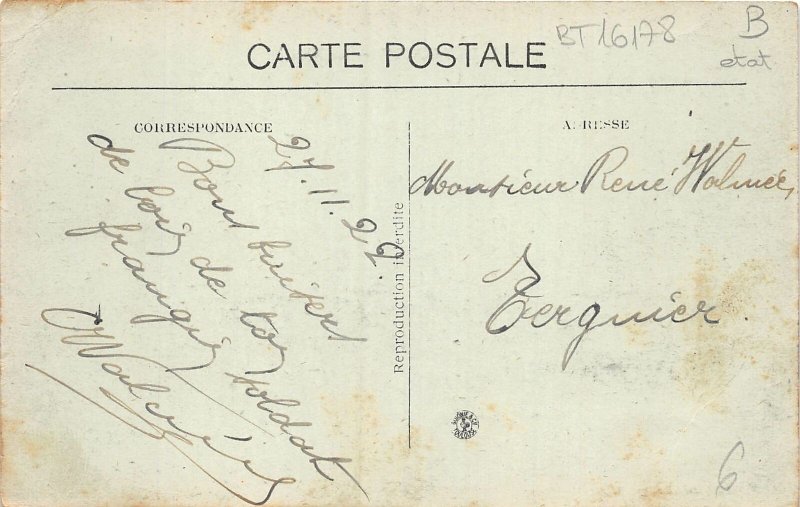 BT16178
B
état
CARTE POSTALE
CORRESPONDANCE
A RESSE
27.11.22.
Bons baisers
de loin de ton soldat
frangin
Monsieur René
Tergnier.
Reproduction interdite
TOULOUSE
6